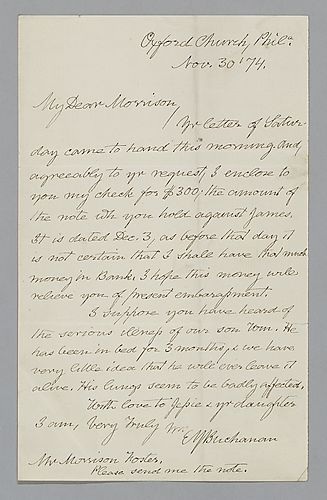 Oxford Church, Phila.
Nov. 30 '74.
My Dear Morrison,
Yr letter of Satur-
day came to hand this morning. And,
agreeably to yr request, I enclose to
you my check for $300, the amount of
the note wh. you hold against James.
It is dated Dec. 3, as before that day it
is not certain that I shall have that much
money in Bank. I hope this money will
relieve you of present embarassment.
I suppose you have heard of
the serious illness of our son Wm. He
has been in bed for 3 months, & we have
very little idea that he will ever leave it
alive. His lungs seem to be badly affected.
With love to Jessie & yr daughter
I am, Very Truly Yrs,
E Y Buchanan
Mr Morrison Foster.
Please send me the note.